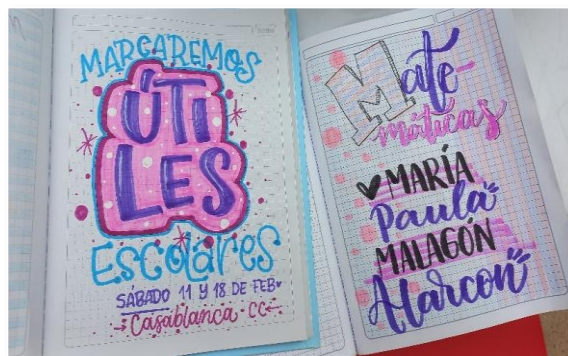 MARCAREMOS
ÚTI
LES
ESCOLARES
SÁBADO 11 Y 18 DE FEB
Casablanca CC
Mate-
máticas
MARÍA
Paula
MALAGÓN
Alarcon